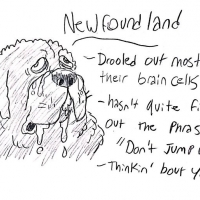 Newfoundland
- Drooled out most
their brain cells
- hasn't quite fi
out the Phras
"Don't Jump
- Thinkin' bout y